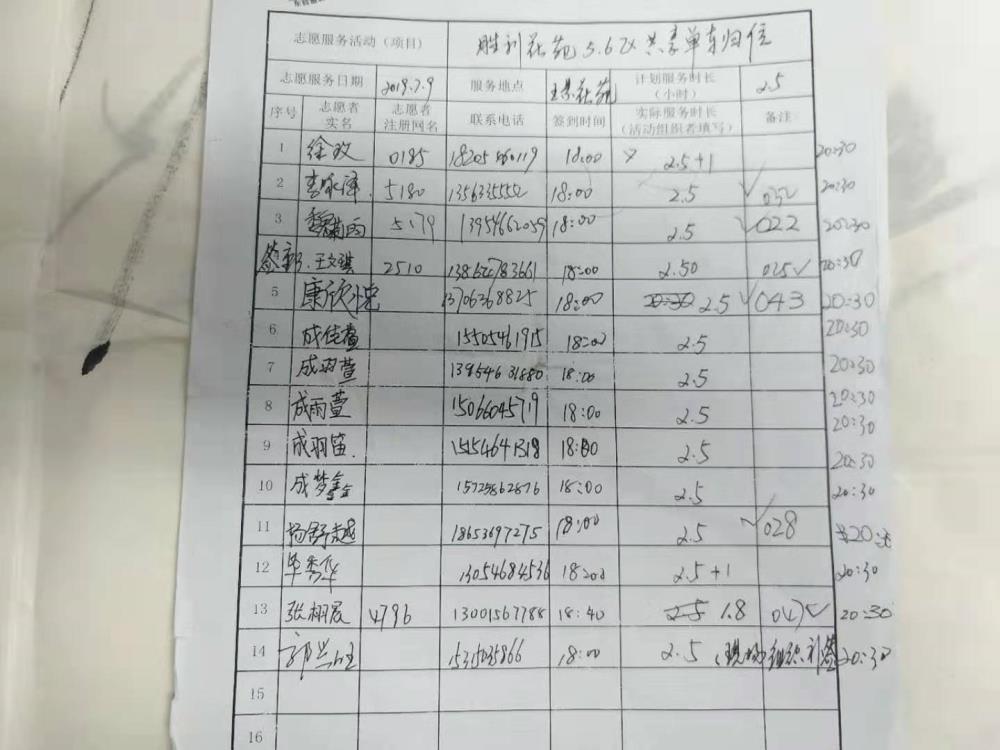 志愿服务活动（项目） 胜利花苑5.6区共享单车归位
志愿服务日期 2019.7.9 服务地点 花苑 计划服务时长（小时） 2.5
序号 志愿者实名 志愿者注册网名 联系电话 签到时间 实际服务时长（活动组织者填写） 备注
1 徐玫 0185 18:00 2.5+1 20:30
2 李咏泽 5180 18:00 2.5 032 20:30
3 5179 13954662059 18:00 2.5 022 20:30
签到 王文琪 2510 18:00 2.50 025 20:30
5 康欣悦 13706368825 18:00 2.5 043 20:30
6 成佳萱 15505461915 18:00 2.5 20:30
7 成羽萱 18:00 2.5 20:30
8 成雨萱 15066045719 18:00 2.5 20:30
20:30
9 成羽笛 18:00 2.5 20:30
10 成梦鑫 15725862876 18:00 2.5 20:30
11 杨舒越 18653697275 18:00 2.5 028
12 毕秀华 13054684536 18:00 2.5+1 20:30
13 张栩宸 4796 13001567788 18:40 1.8 047 20:30
14 18:00 2.5 20:30
15
16